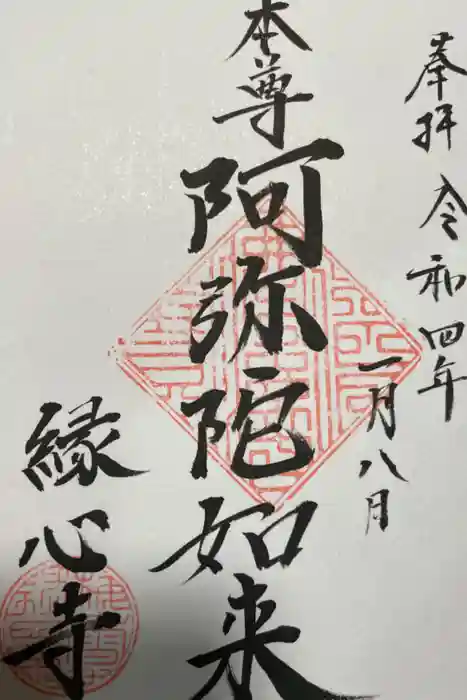 奉拝 令和四年
一月八日
本尊
阿弥陀如来
縁心寺